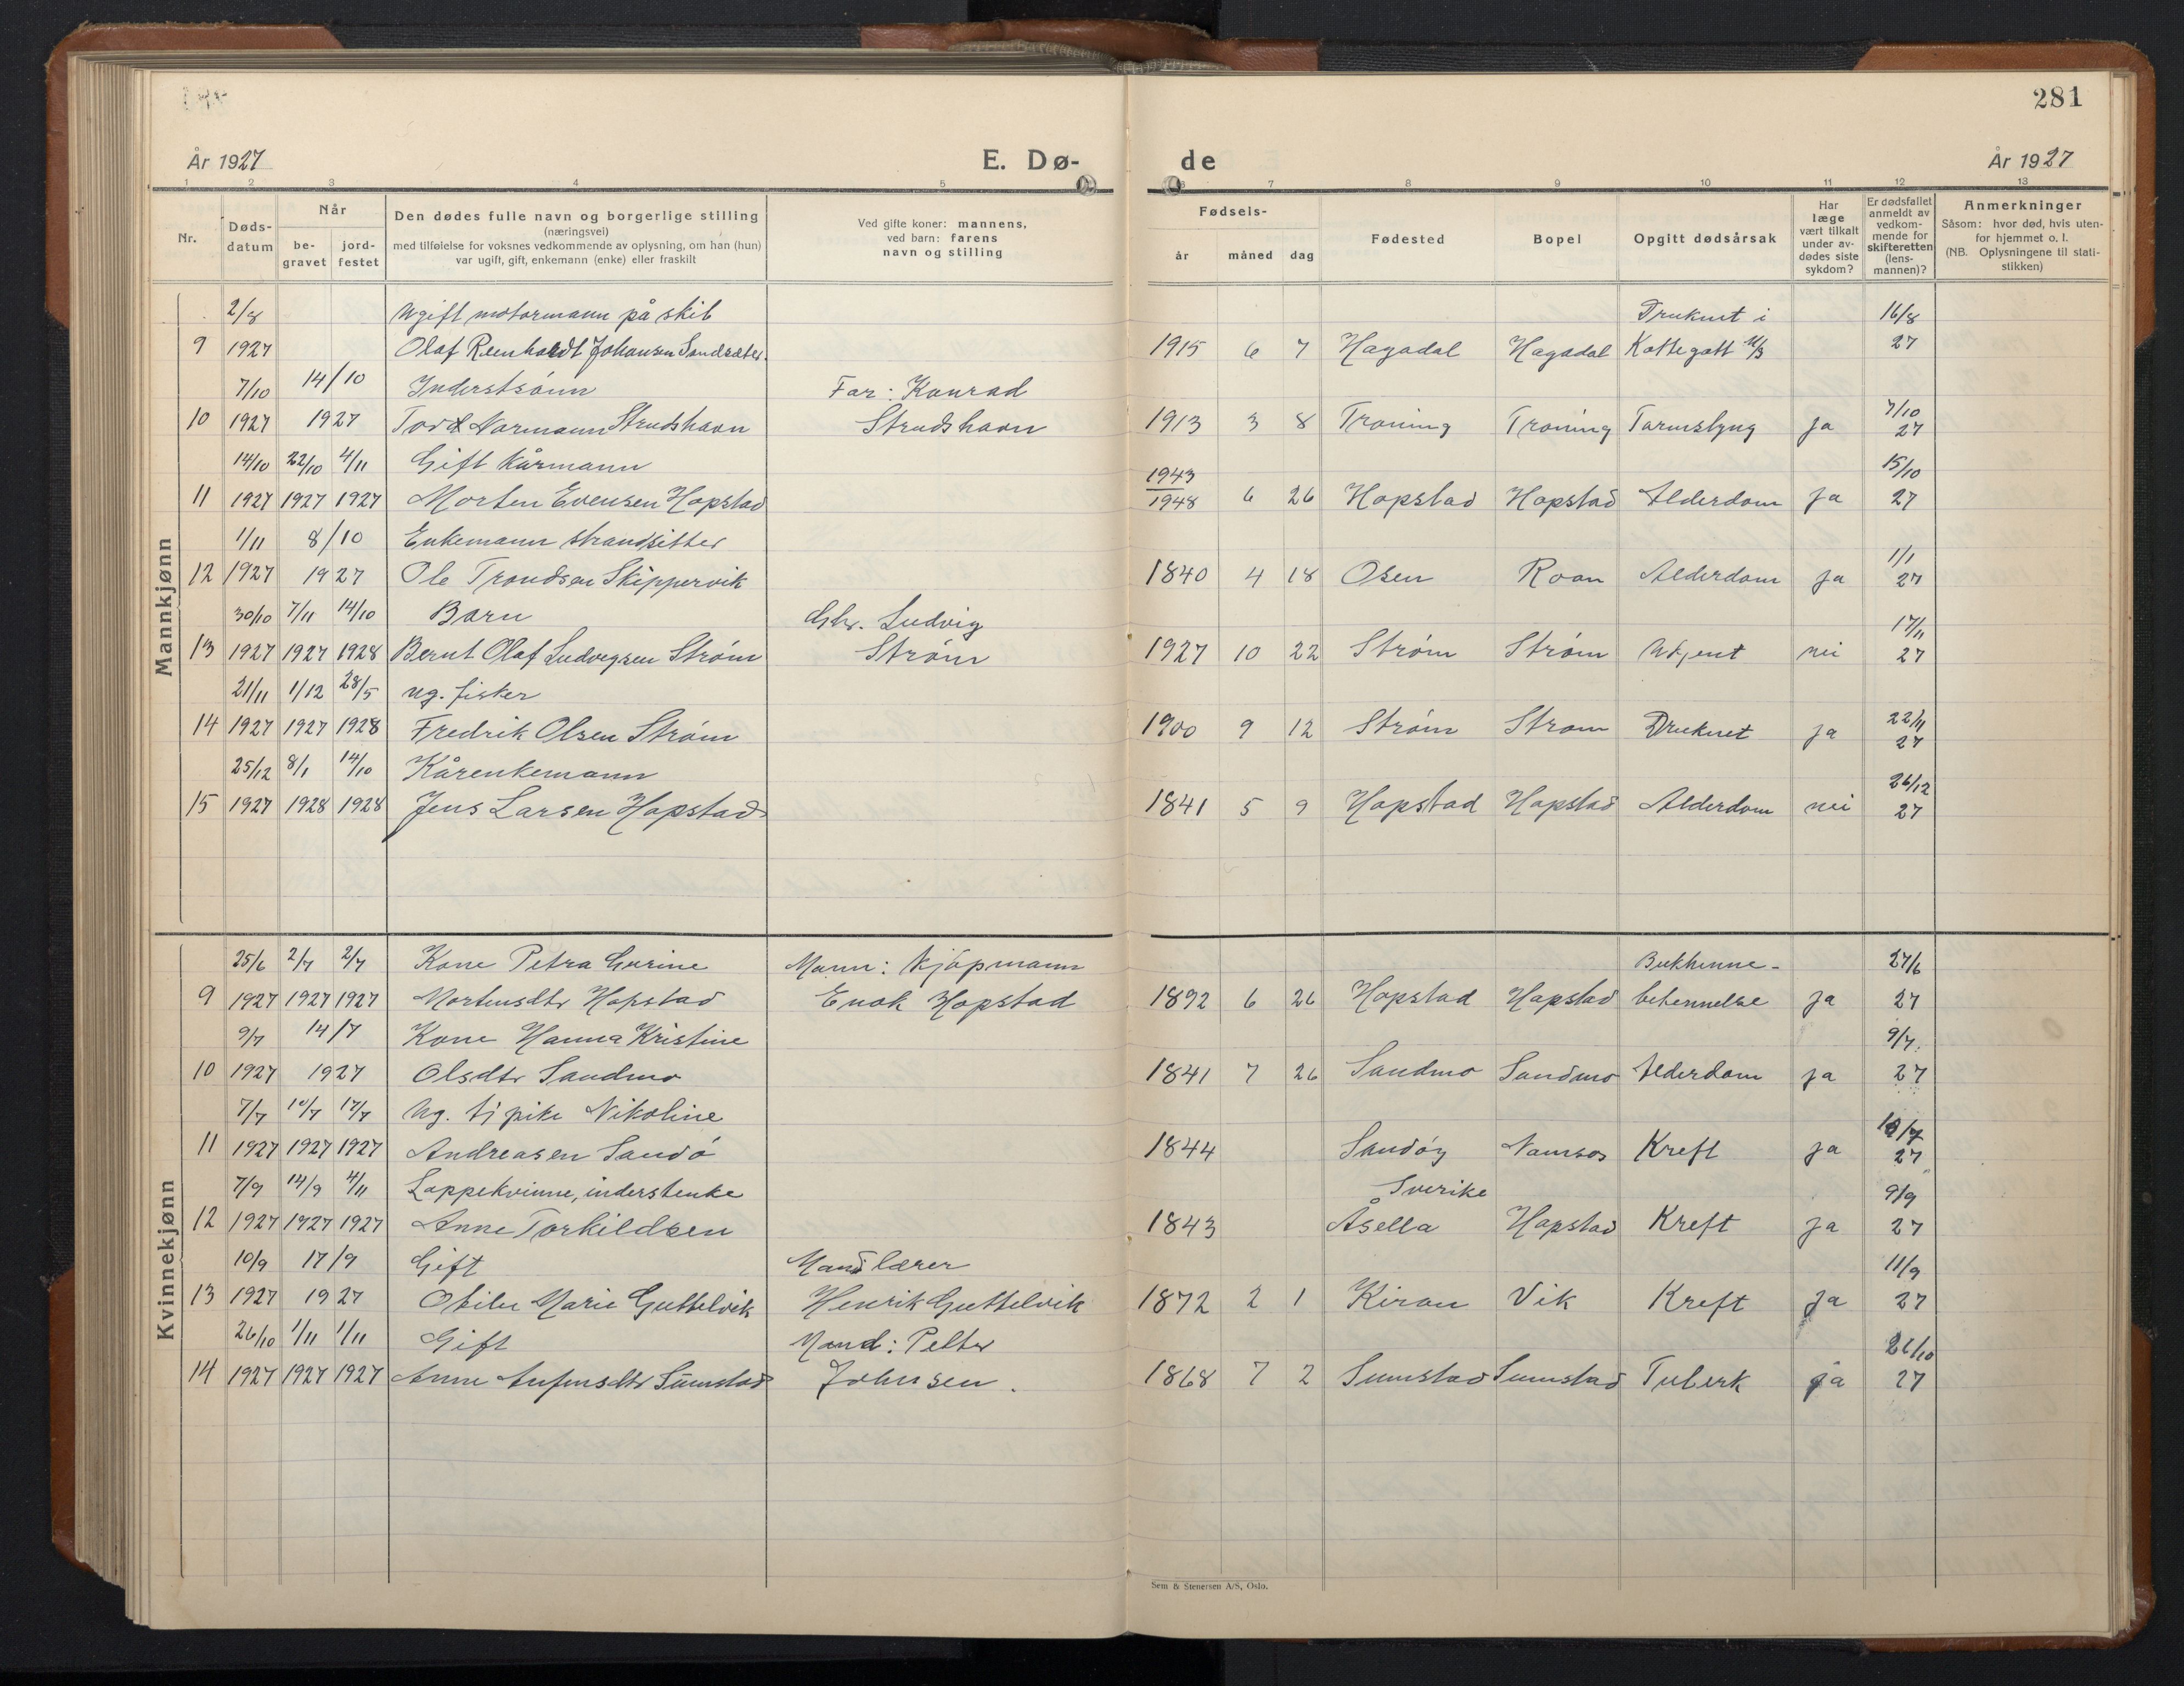 281
År 1927 E. Dø- de År 1927
1 2 3 4 5 6 7 8 9 10 11 12 13
Nr. Døds-datum Når begravet jordfestet Den dødes fulle navn og borgerlige stilling (næringsvei) med tilføielse for voksnes vedkommende av oplysning, om han (hun) var ugift, gift, enkemann (enke) eller fraskilt Ved gifte koner: mannens, ved barn: farens navn og stilling Fødsels- år måned dag Fødested Bopel Opgitt dødsårsak Har læge vært tilkalt under avdødes siste sykdom? Er dødsfallet anmeldt av vedkommende for skifteretten (lensmannen)? Anmerkninger Såsom: hvor død, hvis utenfor hjemmet o. l. (NB. Oplysningene til statistikken)
Mannkjønn
2/8 Ugift motormann på skib Druknet i 16/8
9 1927 Olaf Reenhardt Johansen 1915 6 7 Hagadal Hagadal Kattegatt 27
7/10 14/10 Inderstsönn Far: Konrad 7/10
10 1927 1927 Tord Normann Strudshavn Strudshavn 1913 3 8 Troning Troning Tarmslyng ja 27
14/10 22/10 4/11 Gift kårmann 1943 15/10
11 1927 1927 1927 Morten Evensen Hopstad 1948 6 26 Hopstad Hopstad Alderdom ja 27
1/11 8/10 Enkemann strandsitter 1/1
12 1927 1927 Ole Trondsen Skippervik 1840 4 18 Osen Roan Alderdom ja 27
30/10 7/11 14/10 Barn Gbr. Ludvig 17/11
13 1927 1927 1928 Bernt Olaf Ludvegsen Ström Ström 1927 10 22 Ström Ström Ukjent nei 27
21/11 1/12 28/5 ug. fisker 22/11
14 1927 1927 1928 Fredrik Olsen Ström 1900 9 12 Ström Strom Druknet ja 27
25/12 8/1 14/10 Kårenkemann 26/12
15 1927 1928 1928 Jens Larsen Hopstad 1841 5 9 Hopstad Hopstad Alderdom nei 27
Kvinnekjønn
25/6 2/7 2/7 Kone Petra Gurine Mann: Kjöpmann Bukhinne- 27/6
9 1927 1927 1927 Mortensdtr Hopstad Enok Hopstad 1892 6 26 Hopstad Hopstad betennelse ja 27
9/7 14/7 Kone Hanna Kristine 9/7
10 1927 1927 Olsdtr Sandmo 1841 7 26 Sandmo Sandmo Alderdom ja 27
7/7 10/7 17/7 Ug. tj pike Nikoline 10/7
11 1927 1927 1927 Andreasen Sandö 1844 Sandöy Namsos Kreft ja 27
7/9 14/9 4/11 Lappekvinne, inderstenke Sverike 9/9
12 1927 1927 1927 Anne Torkildsen 1843 Åsella Hopstad Kreft ja 27
10/9 17/9 Gift Mand lærer 11/9
13 1927 1927 Otilie Marie Guttelvik Henrik Guttelvik 1872 2 1 Kiran Vik Kreft ja 27
26/10 1/11 1/11 Gift Mand: Petter 26/10
14 1927 1927 1927 Anne Sumstad Johnsen. 1868 7 2 Sumstad Sumstad Tuberk ja 27
Sem & Stenersen A/S, Oslo.